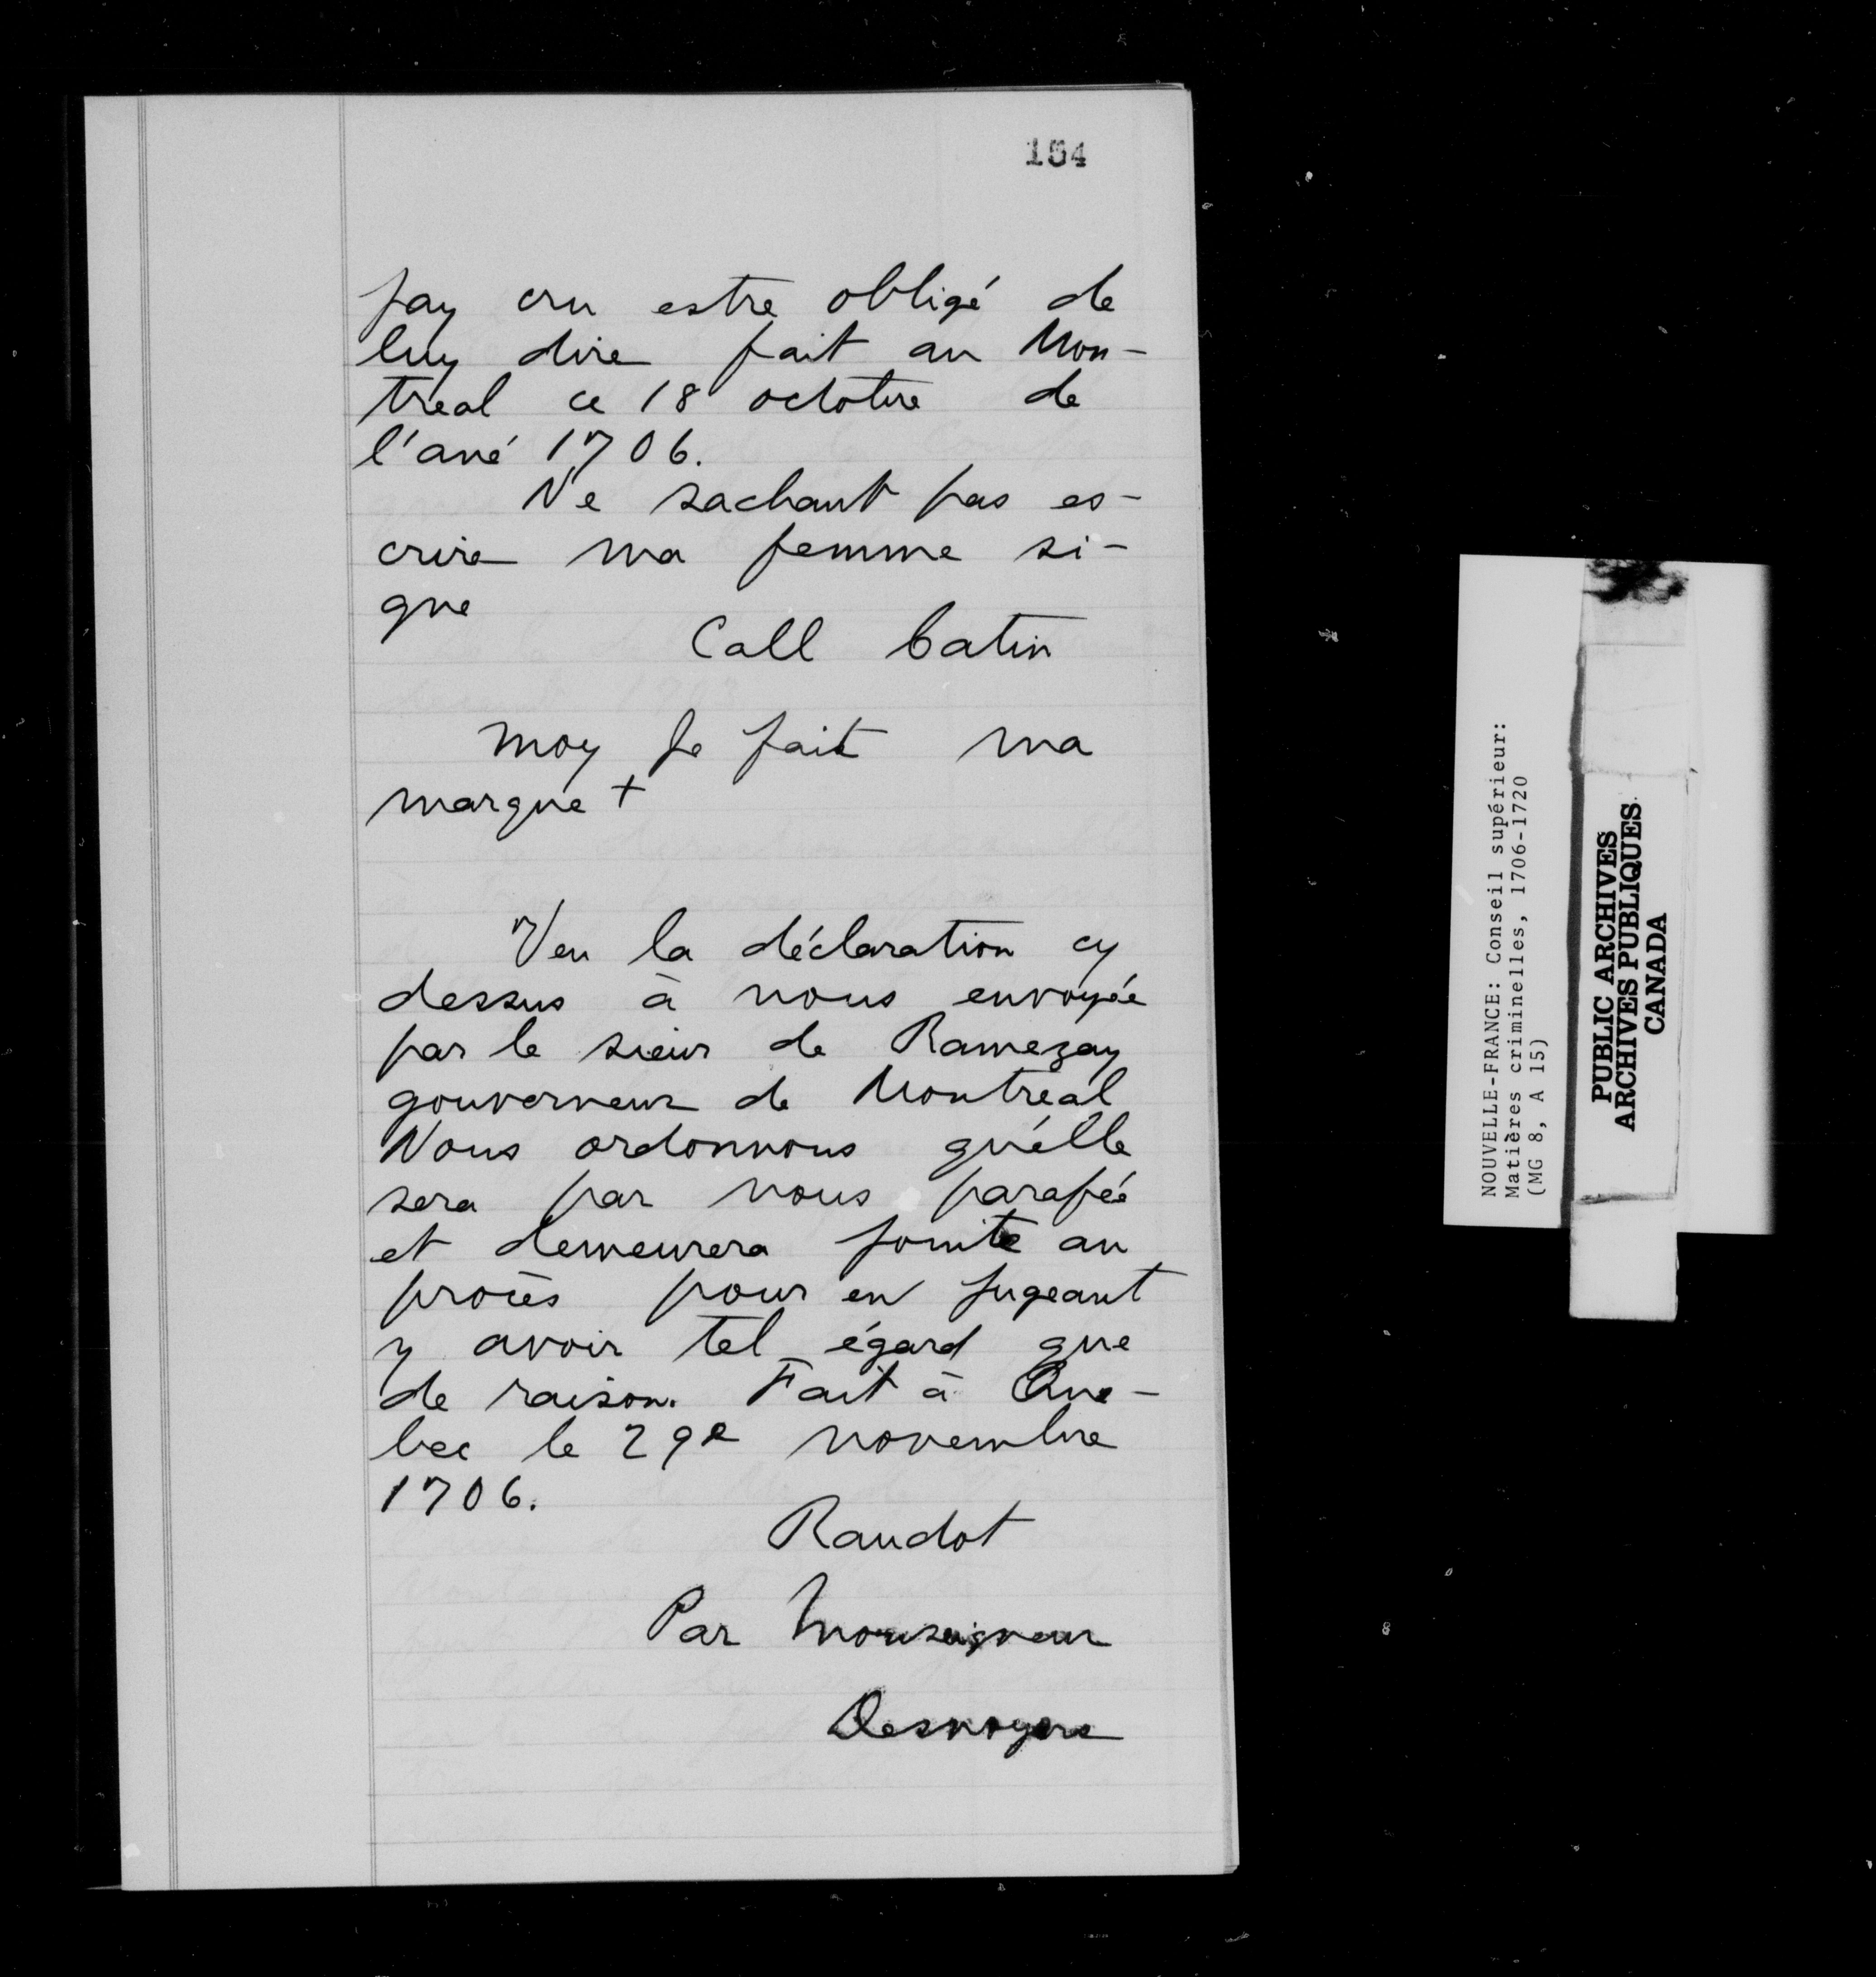 154
jay cru estre obligé de
luy dire fait au Mon-
treal ce 18 octobre de
l'ané 1706.
Ne sachant pas es-
crire ma femme si-
gne
Call Catin
moy Je fait ma
marque +
Veu la déclaration cy
dessus à nous envoyée
par le sieur de Ramezay
gouverneur de Montréal
Nous ordonnons qu'elle
sera par nous parafée
et demeurera jointe au
procès pour en jugeant
y avoir tel égard que
de raison. Fait à Que-
bec le 29e novembre
1706.
Raudot
Par Monseigneur
Desnoyers
NOUVELLE-FRANCE: Conseil supérieur:
Matières criminelles, 1706-1720
(MG 8, A 15)
PUBLIC ARCHIVES
ARCHIVES PUBLIQUES
CANADA